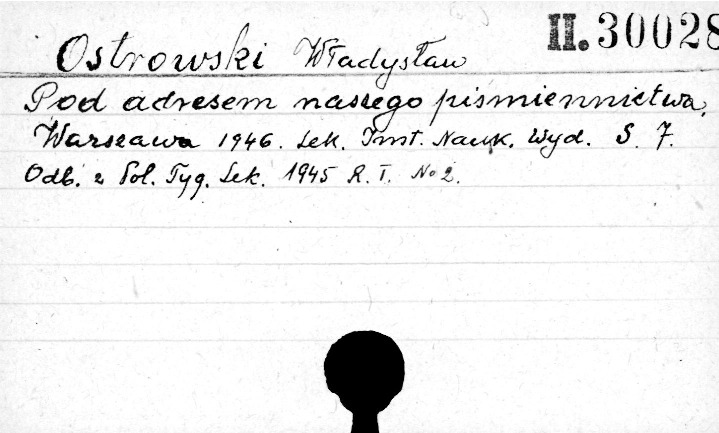 Ostrowski Władysław II. 30028
Pod adresem naszego piśmiennictwa.
Warszawa 1946. Lek. Inst. Nauk. Wyd. S. 7.
Odb. z Pol. Tyg. Lek. 1945 R. I. No 2.